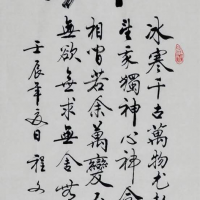 冰寒千古萬物尤
望我獨神心神合
相間若余萬變不
無欲無求無舍無
壬辰年夏日程文